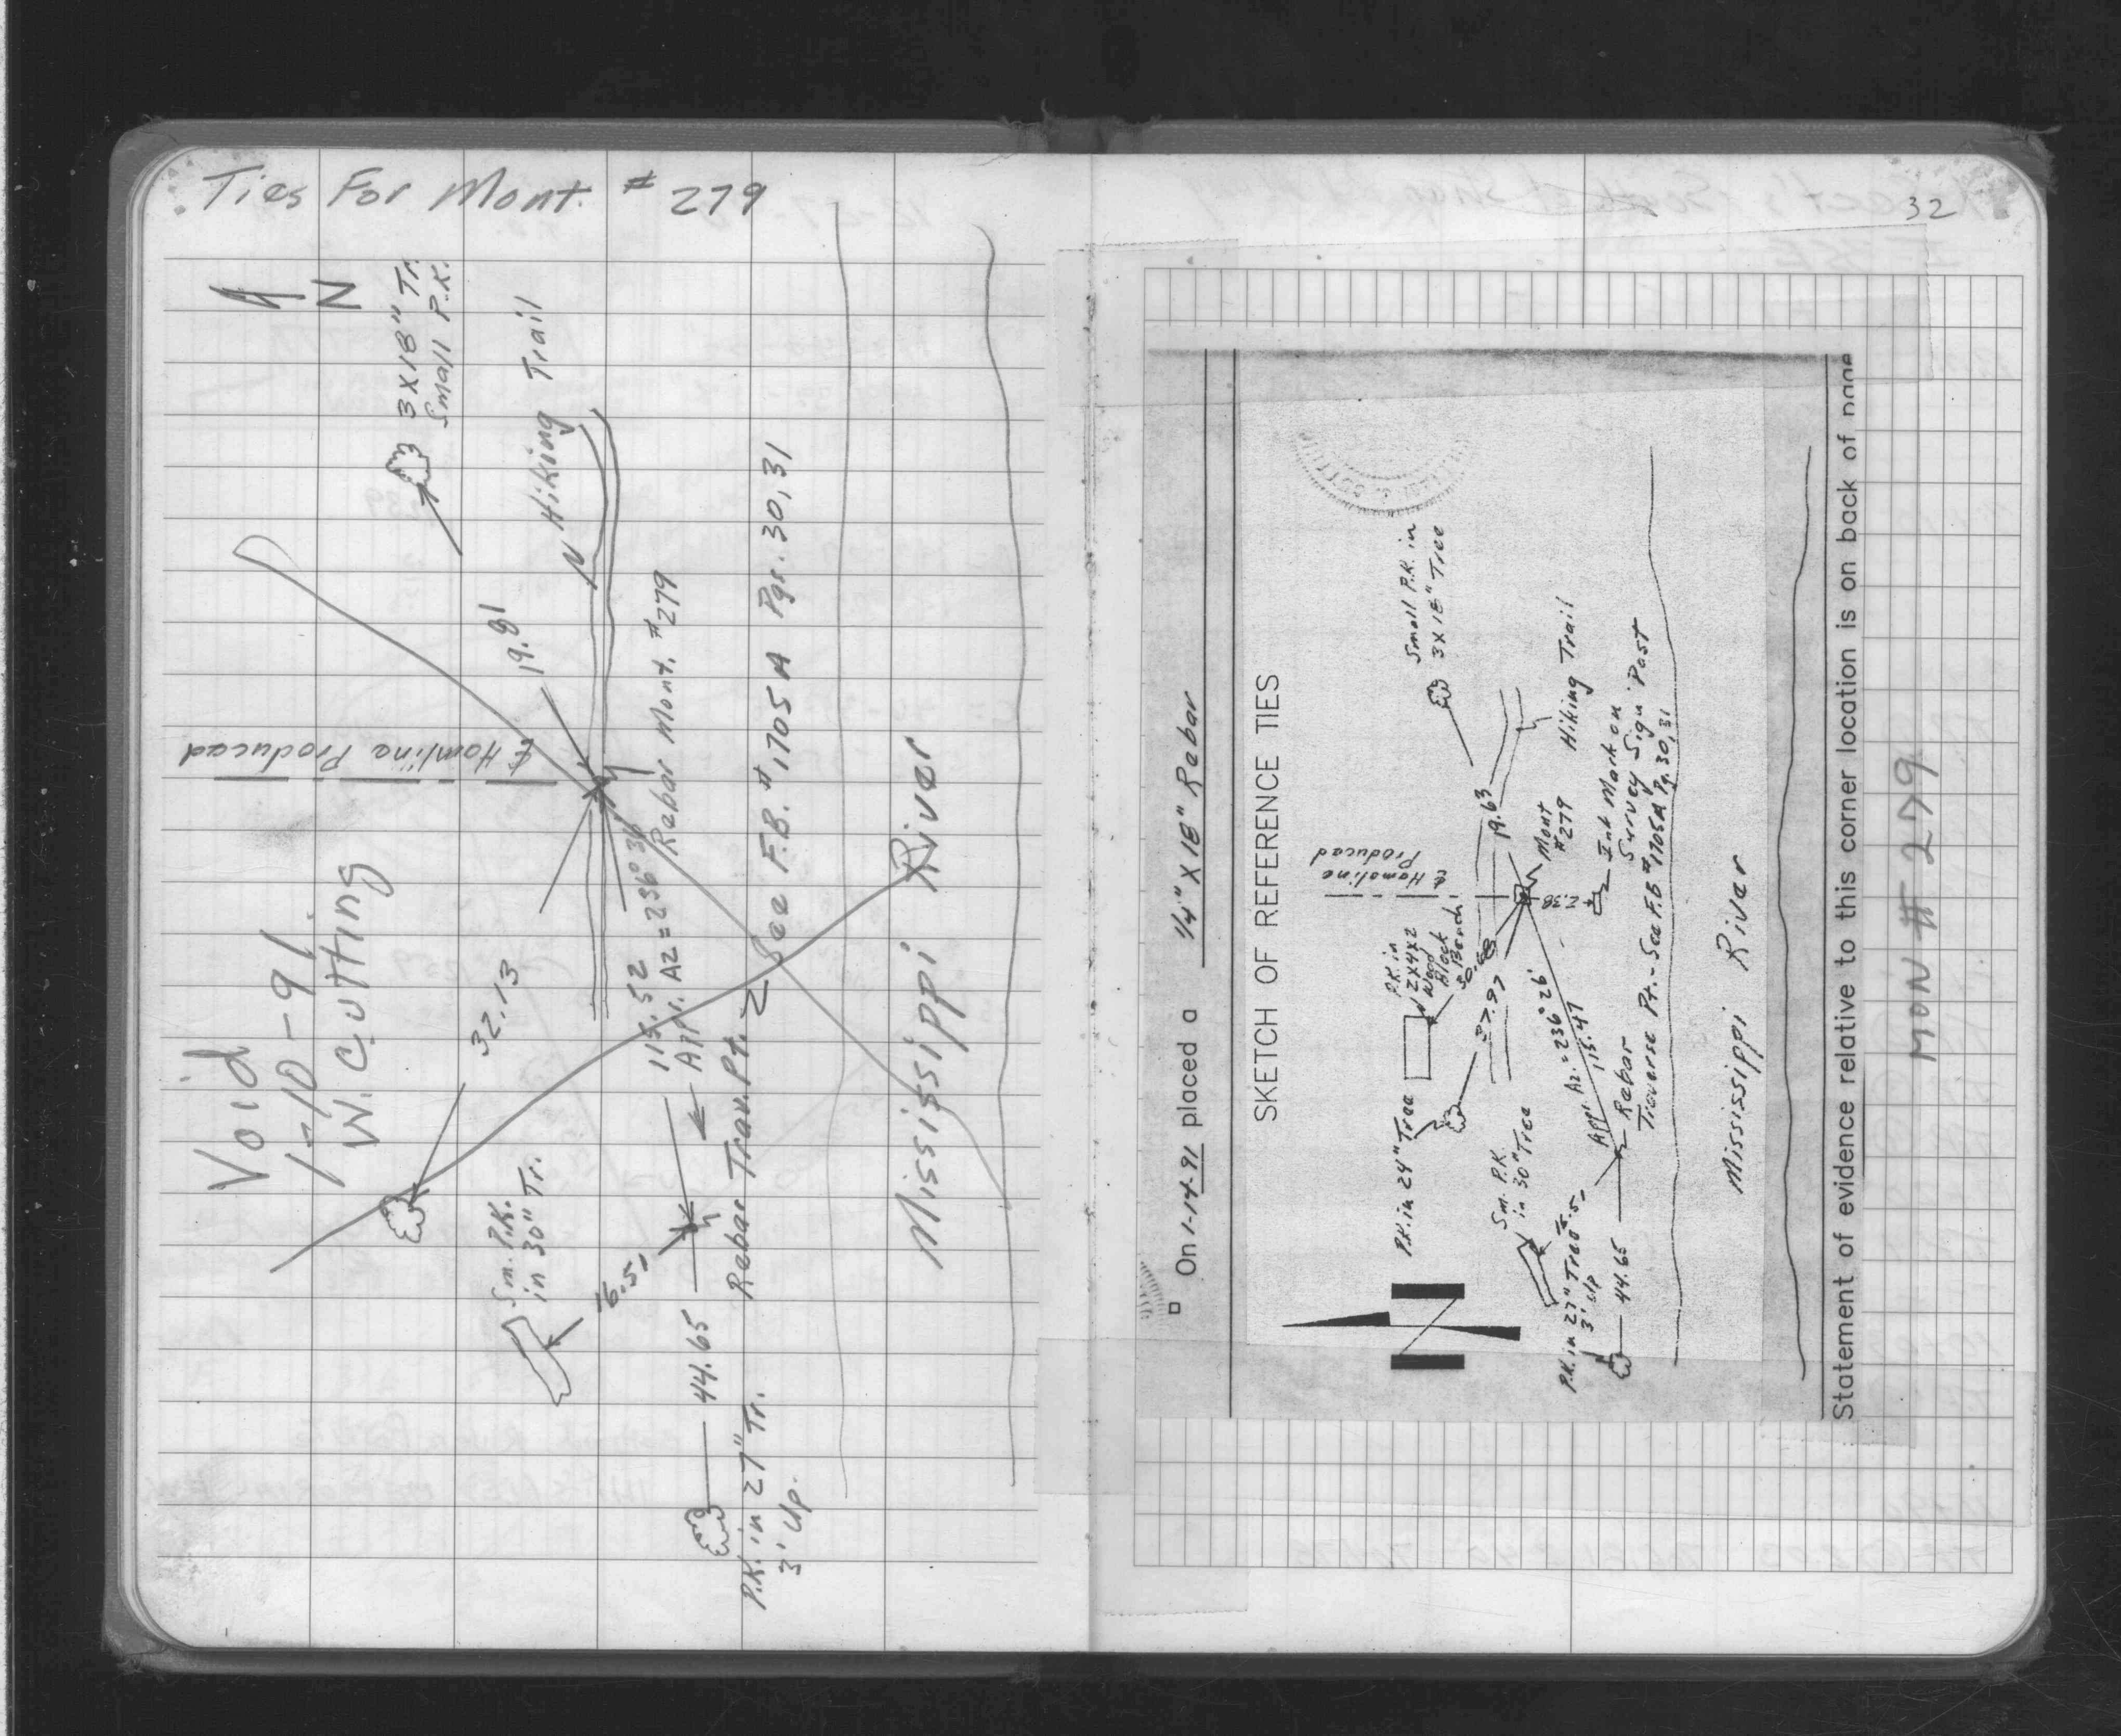 Ties For Mont. # 279
N
3X18" Tr.
Small P.K.
Hiking Trail
19.81
℄ Hamline Produced
Void
1-10-91
W. Cutting
32.13
Rebar Mont. #279
115.52
Sm. P.K.
in 30" Tr.
16.51
Rebar Trav. Pt. - See F.B. #1705A Pgs. 30,31
44.65
P.K. in 27" Tr.
3' Up.
Mississippi River
32
On 1-14-91 placed a 1/4" X 18" Rebar
SKETCH OF REFERENCE TIES
N
Small P.K. in
3X18" Tree
℄ Hamline
Produced
P.K. in
2X4X2
Wood
Block
P.K. in 24" Tree
37.97
19.63
Hiking Trail
Mont
#279
2.38
Ink Mark on
Survey Sign Post
Sm. P.K.
in 30" Tree
App. Az. = 236° 26'
115.47
Rebar
Traverse Pt. - See F.B #1705A Pg. 30,31
P.K. in 27" Tree
3' Up
44.65
Mississippi River
Statement of evidence relative to this corner location is on back of page
MON # 279